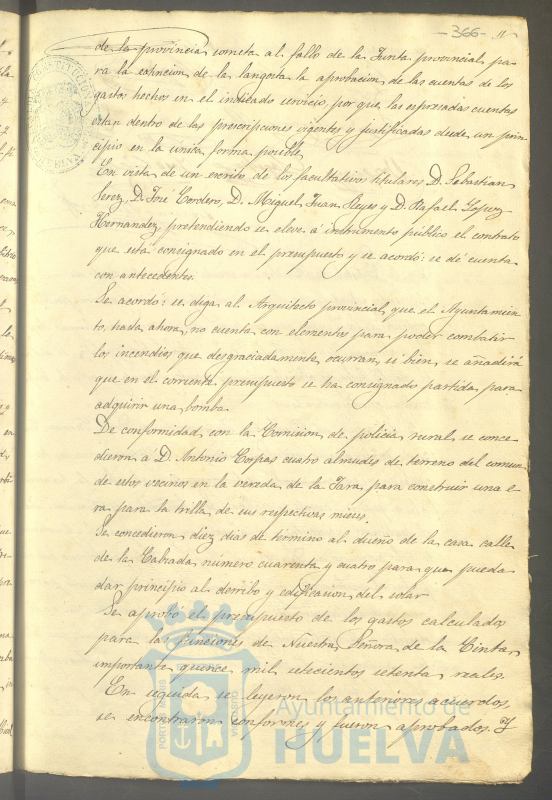 -366- 11
de la provincia someta al fallo de la Junta provincial pa-
ra la estincion de la langosta la aprobacion de las cuentas de los
gastos hechos en el indicado servicio, por que las espresadas cuentas
estan dentro de las prescripciones vigentes y justificadas desde un prin-
cipio en la unica forma posible.
En vista de un escrito de los facultativos titulares D. Sebastian
Perez, D. José Cordero, D. Miguel Juan Reyes y D. Rafael Lopez
Hernandez, pretendiendo se eleve á instrumento público el contrato
que está consignado en el presupuesto y se acordó: se dé cuenta
con antecedentes.
Se acordó: se diga al Arquitecto provincial, que el Ayuntamien-
to, hasta ahora, no cuenta con elementos para poder combatir
los incendios que desgraciadamente ocurran, si bien se añadirá
que en el corriente presupuesto se ha consignado partida para
adquirir una bomba.
De conformidad con la Comision de policia rural se conce-
dieron a D. Antonio Corpas cuatro almudes de terreno del comun
de estos vecinos en la vereda de la para construir una e-
ra para la trilla de sus respectivas mieses.
Se concedieron diez dias de termino al dueño de la casa calle
de la Calzada número cuarenta y cuatro para que pueda
dar principio al derribo y edificacion del solar
Se aprobó el presupuesto de los gastos calculados
para las funciones de Nuestra Señora de la Cinta
importante quince mil setecientos setenta reales.
En seguida se leyeron los anteriores acuerdos
se encontraron conformes y fueron aprobados. Y
Ayuntamiento de
HUELVA